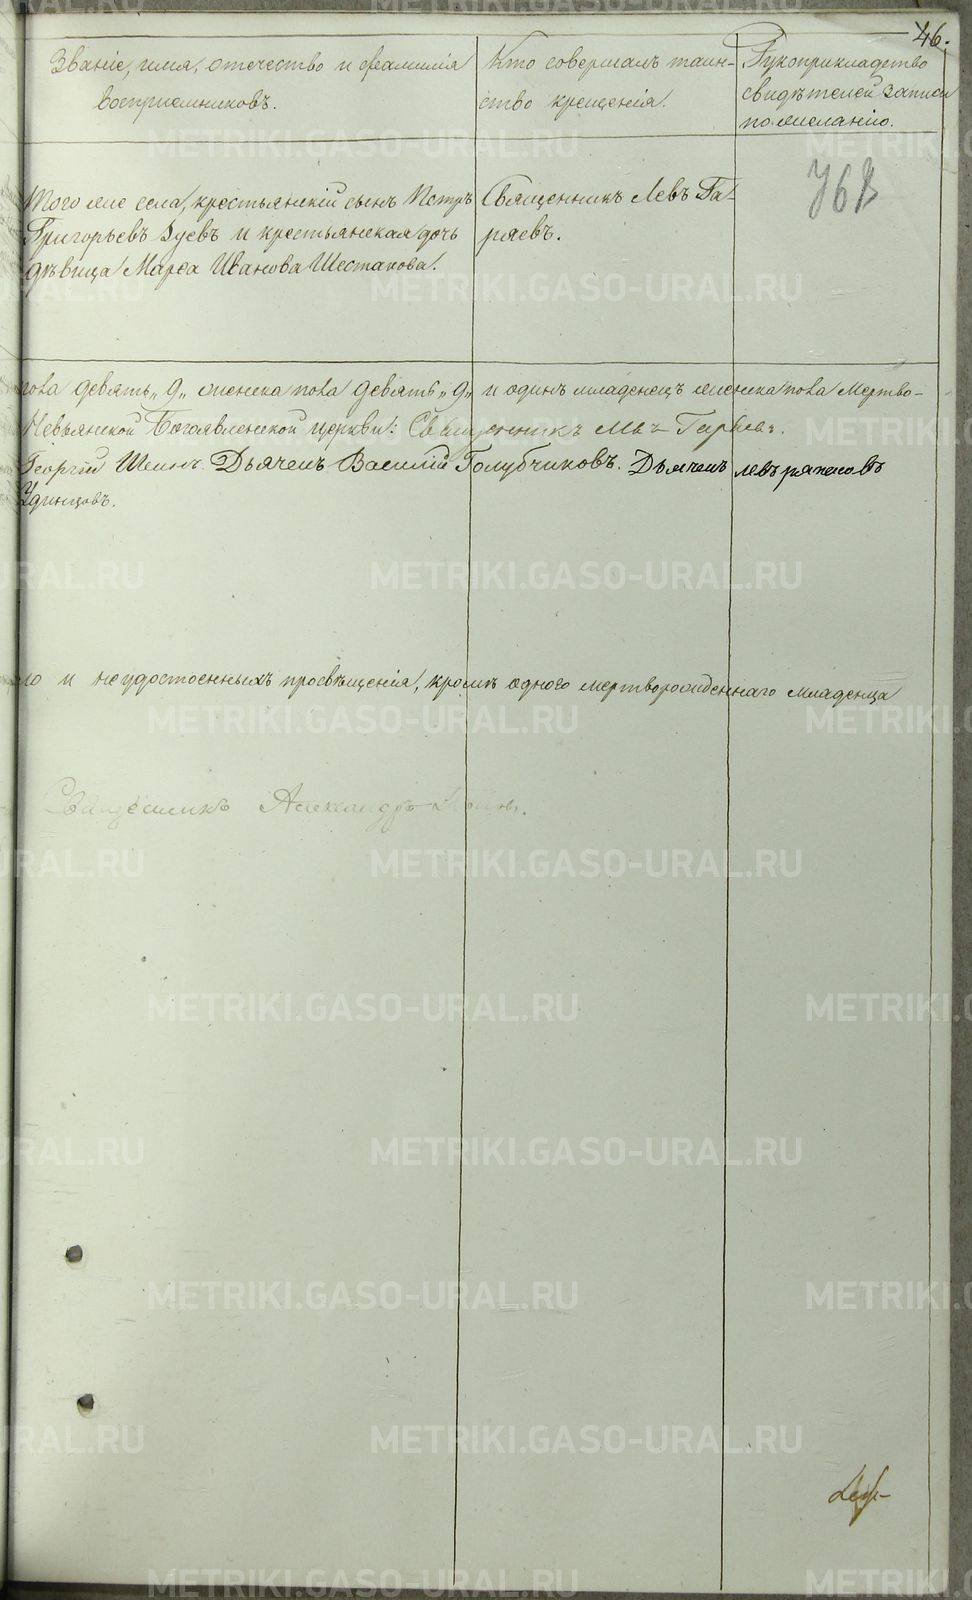 46.
Званіе, имя, отечество и фамилія
воспріемниковъ.
Кто совершалъ таин-
ство крещенія.
Рукоприкладство
свидѣтелей записи
по желанію.
Того же села, крестьянскій сынъ Петръ
Григорьевъ Зуевъ и крестьянская дочь
дѣвица Марѳа Иванова Шестакова.
Священникъ Левъ Га-
ряевъ.
пола девять „9„ женска пола девять „9„ и одинъ младенецъ женска пола мертво-
Невьянской Богоявленской церкви: Священникъ Левъ Гаряевъ.
Георгій Шеинъ. Дьячекъ Василій Голубчиковъ. Дьячекъ
Удинцовъ.
и неудостоенныхъ просвѣщенія, кромѣ одного мертворожденнаго младенца
Священникъ Александръ
METRIKI.GASO-URAL.RU